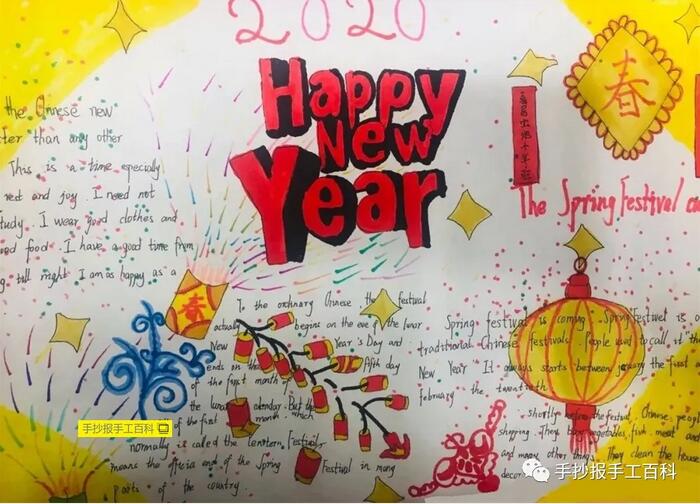 2020
Happy
New
Year
the Chinese new
than any other
This is a time especially
rest and joy. I need not
study. I wear good clothes and
good food. I have a good time from
till night I am as happy as a
春
春
The Spring Festival
To the ordinary Chinese the festival
actually begins on the eve of the lunar
New Year's Day and
ends on the fifth day
of the first month of
the lunar calendar. But the
of the first month which
normally is called the Lantern Festival
means the official end of the Spring Festival in many
parts of the country.
Spring festival is coming. Spring Festival is
traditional Chinese festivals. People used to call it the
New Year. It always starts between january the first
february the twentieth.
shortly before the festival, Chinese people
shopping. They buy vegetables, fish, meat and
and many other things. They clean the house
手抄报手工百科
手抄报手工百科